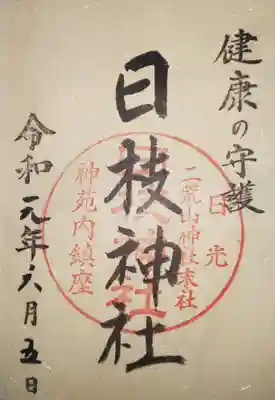 健康の守護
日枝神社
令和元年六月五日
日光
二荒山神社末社
神苑内鎮座
日枝神社